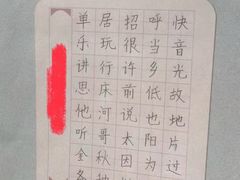 单居招呼快
乐玩很当音
讲行许乡光
思床前低故
他河说也地
听哥太阳片
全秋因为过